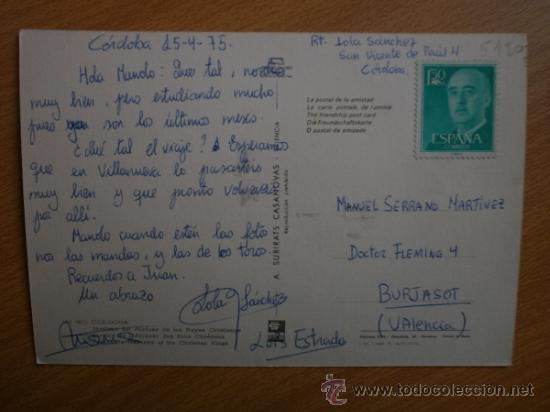 Córdoba 15-4-75.
Hola Manolo: Que tal, nosotros
muy bien, pero estudiando mucho
pues ya son los últimos meses.
¿Qué tal el viaje? Esperamos
que en Villanueva lo pasarais
muy bien y que pronto volvais
por allí.
Manolo cuando estén las fotos
nos las mandas, y las de los toros.
Recuerdos a Juan.
Un abrazo
Lola Sánchez
Estrada
CORDOBA
Alcázar de los Reyes Cristianos
of the Christian Kings
A. SUBIRATS CASANOVAS - VALENCIA
Reproducción prohibida
Rt. Lola Sánchez
San Vicente de Paúl 4
Córdoba
La postal de la amistad
La carte postale de l'amitié
The friendship post card
Die Freundschaftskarte
O postal da amizade
1'50
PTAS
ESPAÑA
CORREOS
MANUEL SERRANO MARTÍNEZ
DOCTOR FLEMING 4
BURJASOT
(VALENCIA)
todocoleccion